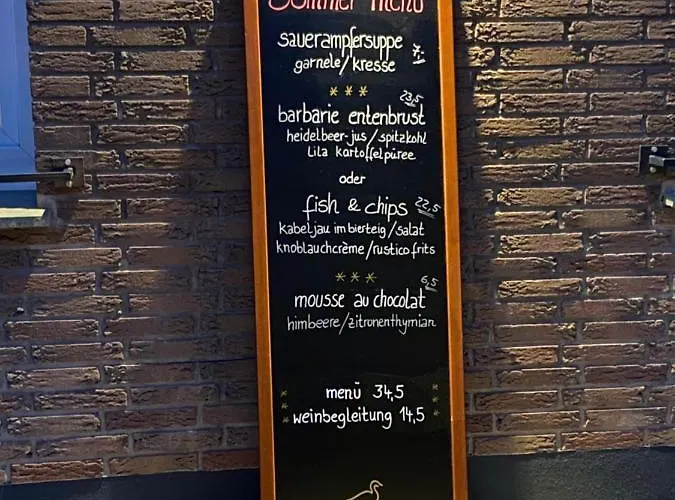 Sommer menü
sauerampfersuppe 7,-
garnele/kresse
***
barbarie entenbrust 23,5
heidelbeer-jus/spitzkohl
Lila kartoffelpüree
oder
fish & chips 22,5
kabeljau im bierteig/salat
knoblauchcrème/rustico frits
***
mousse au chocolat 6,5
himbeere/zitronenthymian
* menü 34,5 *
* *
* weinbegleitung 14,5 *